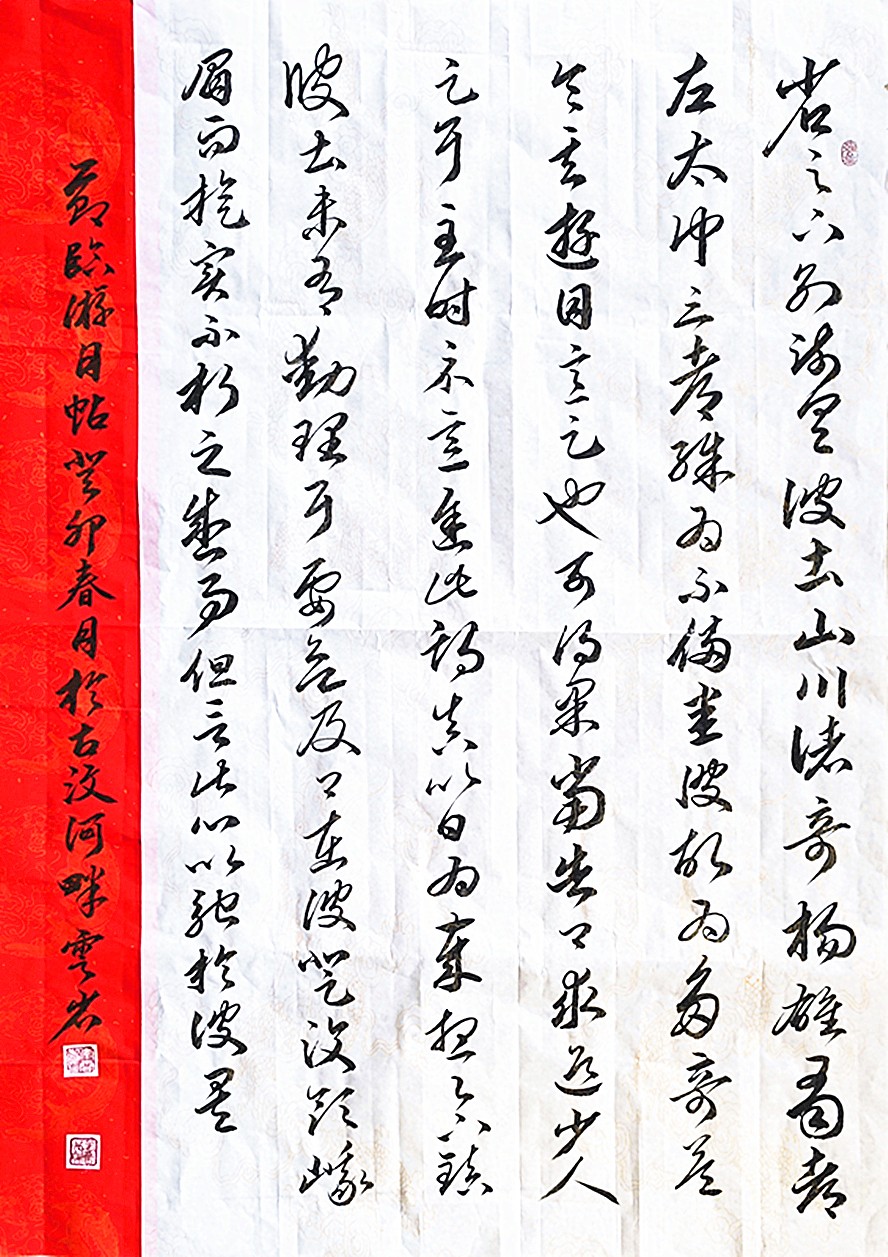 省足下別疏具彼土山川諸奇楊雄蜀都
左太冲三都殊為不備悉彼故為多奇益
令其遊目意足也可得果當告卿求迎少人
足耳至时示意遲此期真以日為歲想足下鎮
彼土未有動理耳要欲及卿在彼登汶領峨
眉而旋实不朽之盛事但言此心以馳於彼矣
節臨游目帖癸卯春月於古汶河畔雲